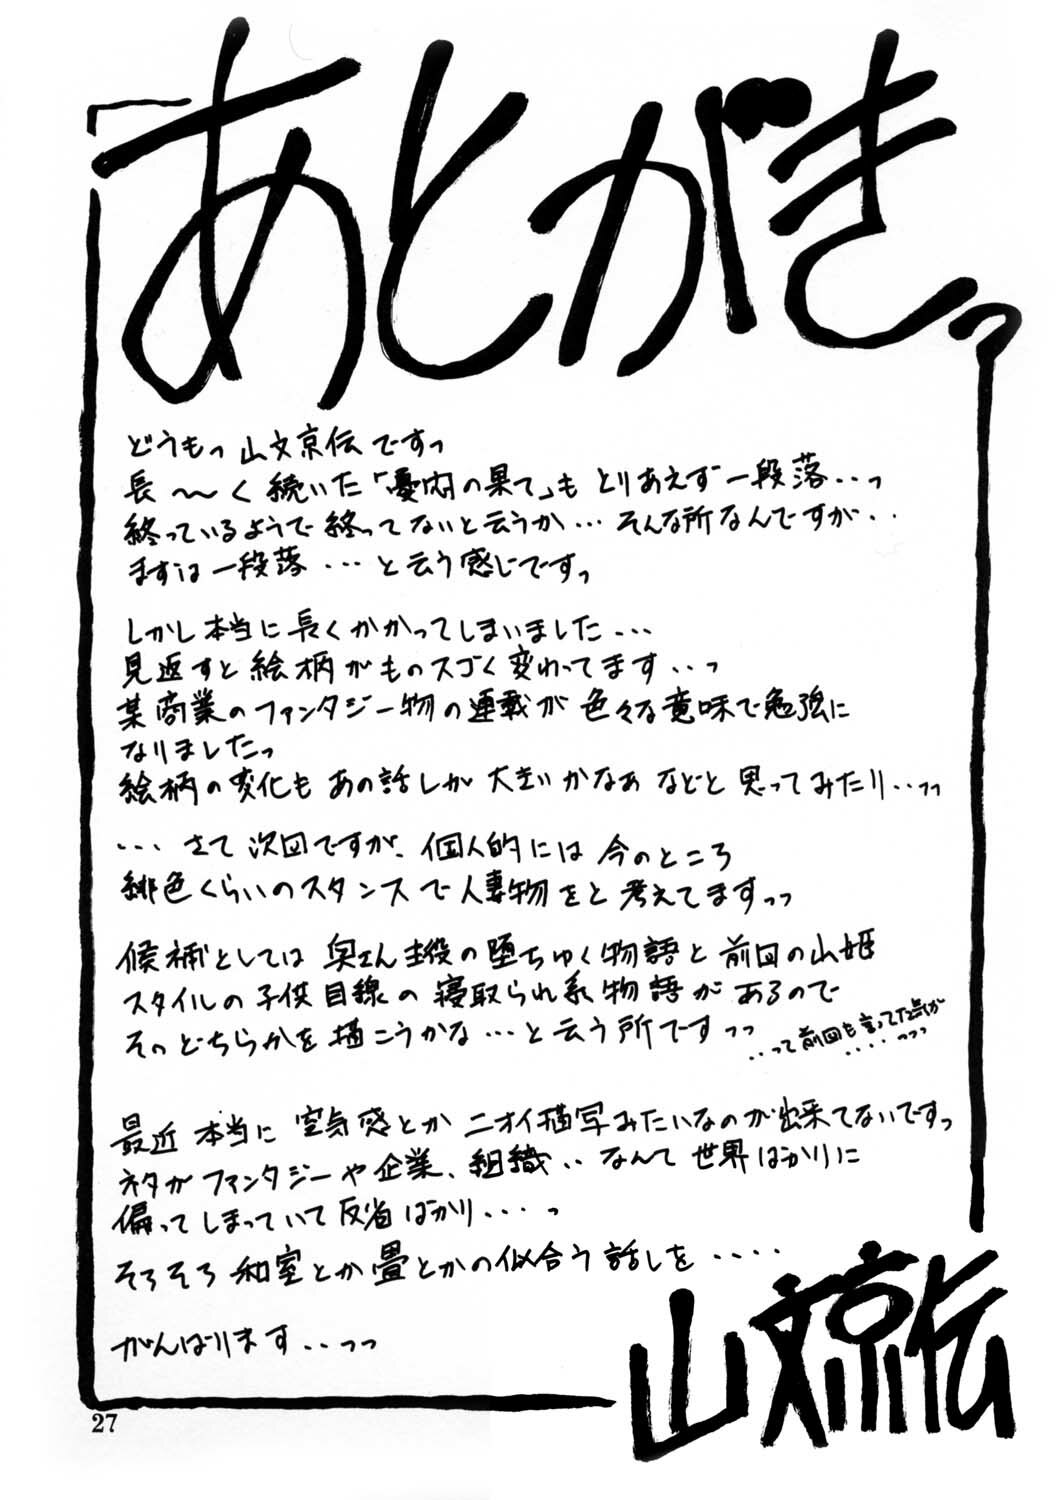 あとがきっ
どうもっ 山文京伝ですっ
長～く続いた「憂肉の果て」も とりあえず一段落‥っ
終っているようで終ってないと云うか… そんな所なんですが‥
まずは一段落…と云う感じですっ
しかし本当に長くかかってしまいました…
見返すと絵柄がものスゴく変わってます‥っ
某商業のファンタジー物の連載が色々な意味で勉強に
なりましたっ
絵柄の変化も あの話しが 大きいかなあ などと 思ってみたり‥っっ
…さて次回ですが、個人的には今のところ
緋色くらいのスタンスで人妻物をと考えてますっっ
候補としては 奥さん主役の堕ちゆく物語と 前回の山姫
スタイルの子供目線の寝取られ系物語があるので
そのどちらかを描こうかな…と云う所ですっっ
‥って前回も言ってた気が
‥‥っっっ
最近 本当に 空気感とか ニオイ描写みたいなのが出来てないですっ
ネタがファンタジーや企業、組織‥なんて 世界ばかりに
偏ってしまっていて反省ばかり‥‥っ
そろそろ 和室とか畳とかの似合う話しを‥‥
がんばります‥っっ
山文京伝
27